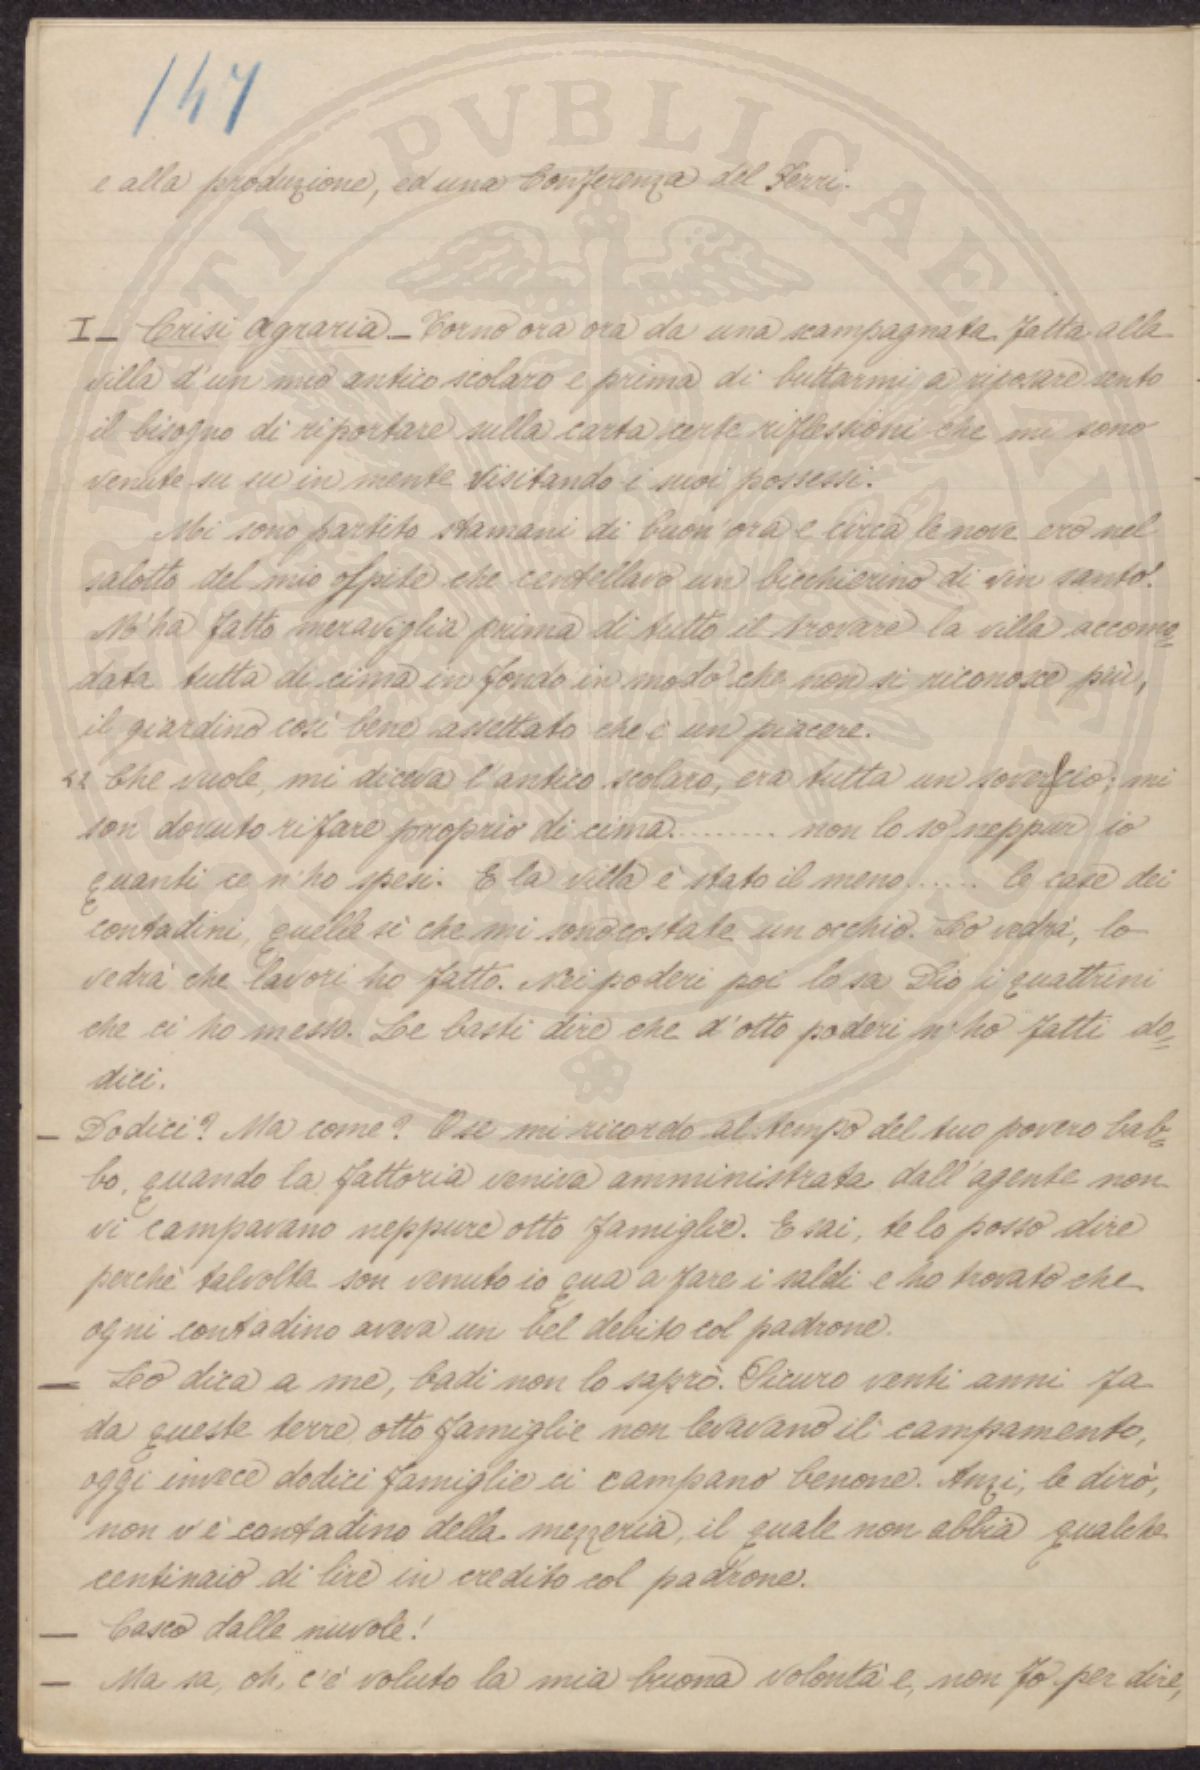 147
e alla produzione, ed una Conferenza del Ferri.
I_ Crisi agraria_ Torno ora ora da una scampagnata fatta alla
villa d'un mio antico scolaro e prima di buttarmi a riposare sento
il bisogno di riportare sulla carta certe riflessioni che mi sono
venute su su in mente visitando i suoi possessi.
Mi sono partito stamani di buon'ora e circa le nove ero nel
salotto del mio ospite che centellavo un bicchierino di vin santo.
M'ha fatto meraviglia prima di tutto il trovare la villa accomo=
data tutta di cima in fondo in modo che non si riconosce più,
il giardino così bene assettato che è un piacere.
« Che vuole, mi diceva l'antico scolaro, era tutta un soverscio; mi
son dovuto rifare proprio di cima......... non lo so neppur io
quanti ce n'ho spesi. E la villa è stato il meno...... le case dei
contadini, quelle sì che mi sono costate un occhio. Lo vedrà, lo
vedrà che lavori ho fatto. Nei poderi poi lo sa Dio i quattrini
che ci ho messo. Le basti dire che d'otto poderi n'ho fatti do=
dici.
_ Dodici? Ma come? O se mi ricordo al tempo del tuo povero bab=
bo, quando la fattoria veniva amministrata dall'agente non
vi campavano neppure otto famiglie. E sai, te lo posso dire
perchè talvolta son venuto io qua a fare i saldi e ho trovato che
ogni contadino aveva un bel debito col padrone.
_ Lo dica a me, badi non lo saprò. Sicuro venti anni fa
da queste terre otto famiglie non levavano il campamento,
oggi invece dodici famiglie ci campano benone. Anzi, le dirò,
non v'è contadino della mezzeria, il quale non abbia qualche
centinaio di lire in credito col padrone.
_ Casco dalle nuvole!
_ Ma sa, oh, c'è voluto la mia buona volontà e, non fo per dire,
PVBLICAE